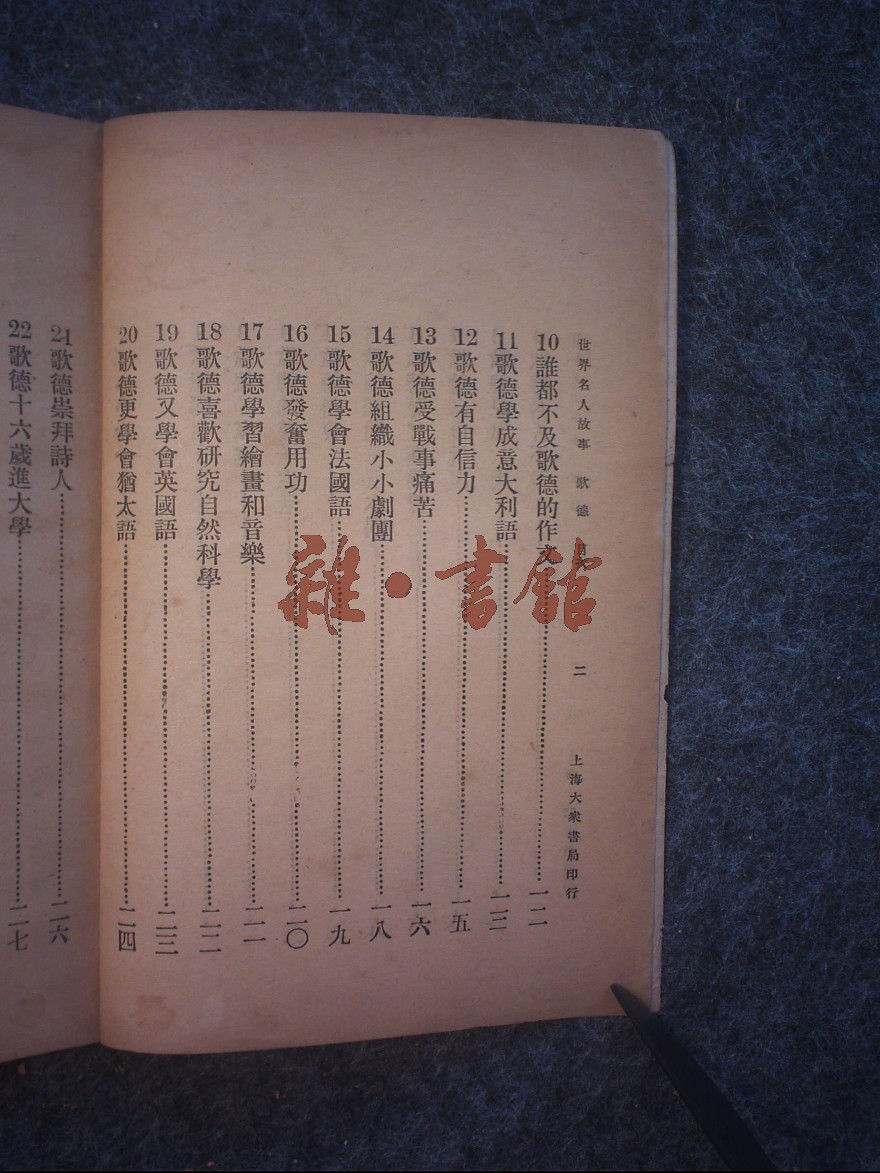 世界名人故事 歌德 目次 二 上海大衆書局印行
10 誰都不及歌德的作文……一二
11 歌德學成意大利語……一三
12 歌德有自信力……一五
13 歌德受戰事痛苦……一六
14 歌德組織小小劇團……一八
15 歌德學會法國語……一九
16 歌德發奮用功……二〇
17 歌德學習繪畫和音樂……二一
18 歌德喜歡研究自然科學……二二
19 歌德又學會英國語……二三
20 歌德更學會猶太語……二四
21 歌德崇拜詩人……二六
22 歌德十六歲進大學……二七
雜·書館